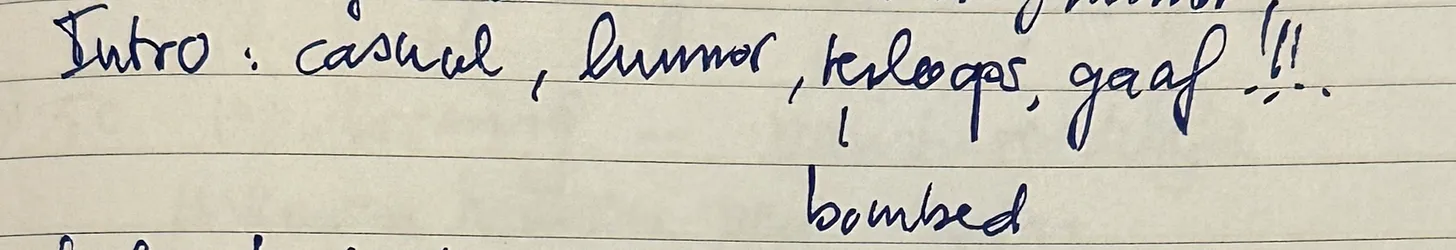 Intro : casual, humor, terloops, gaaf !!!.
bombed